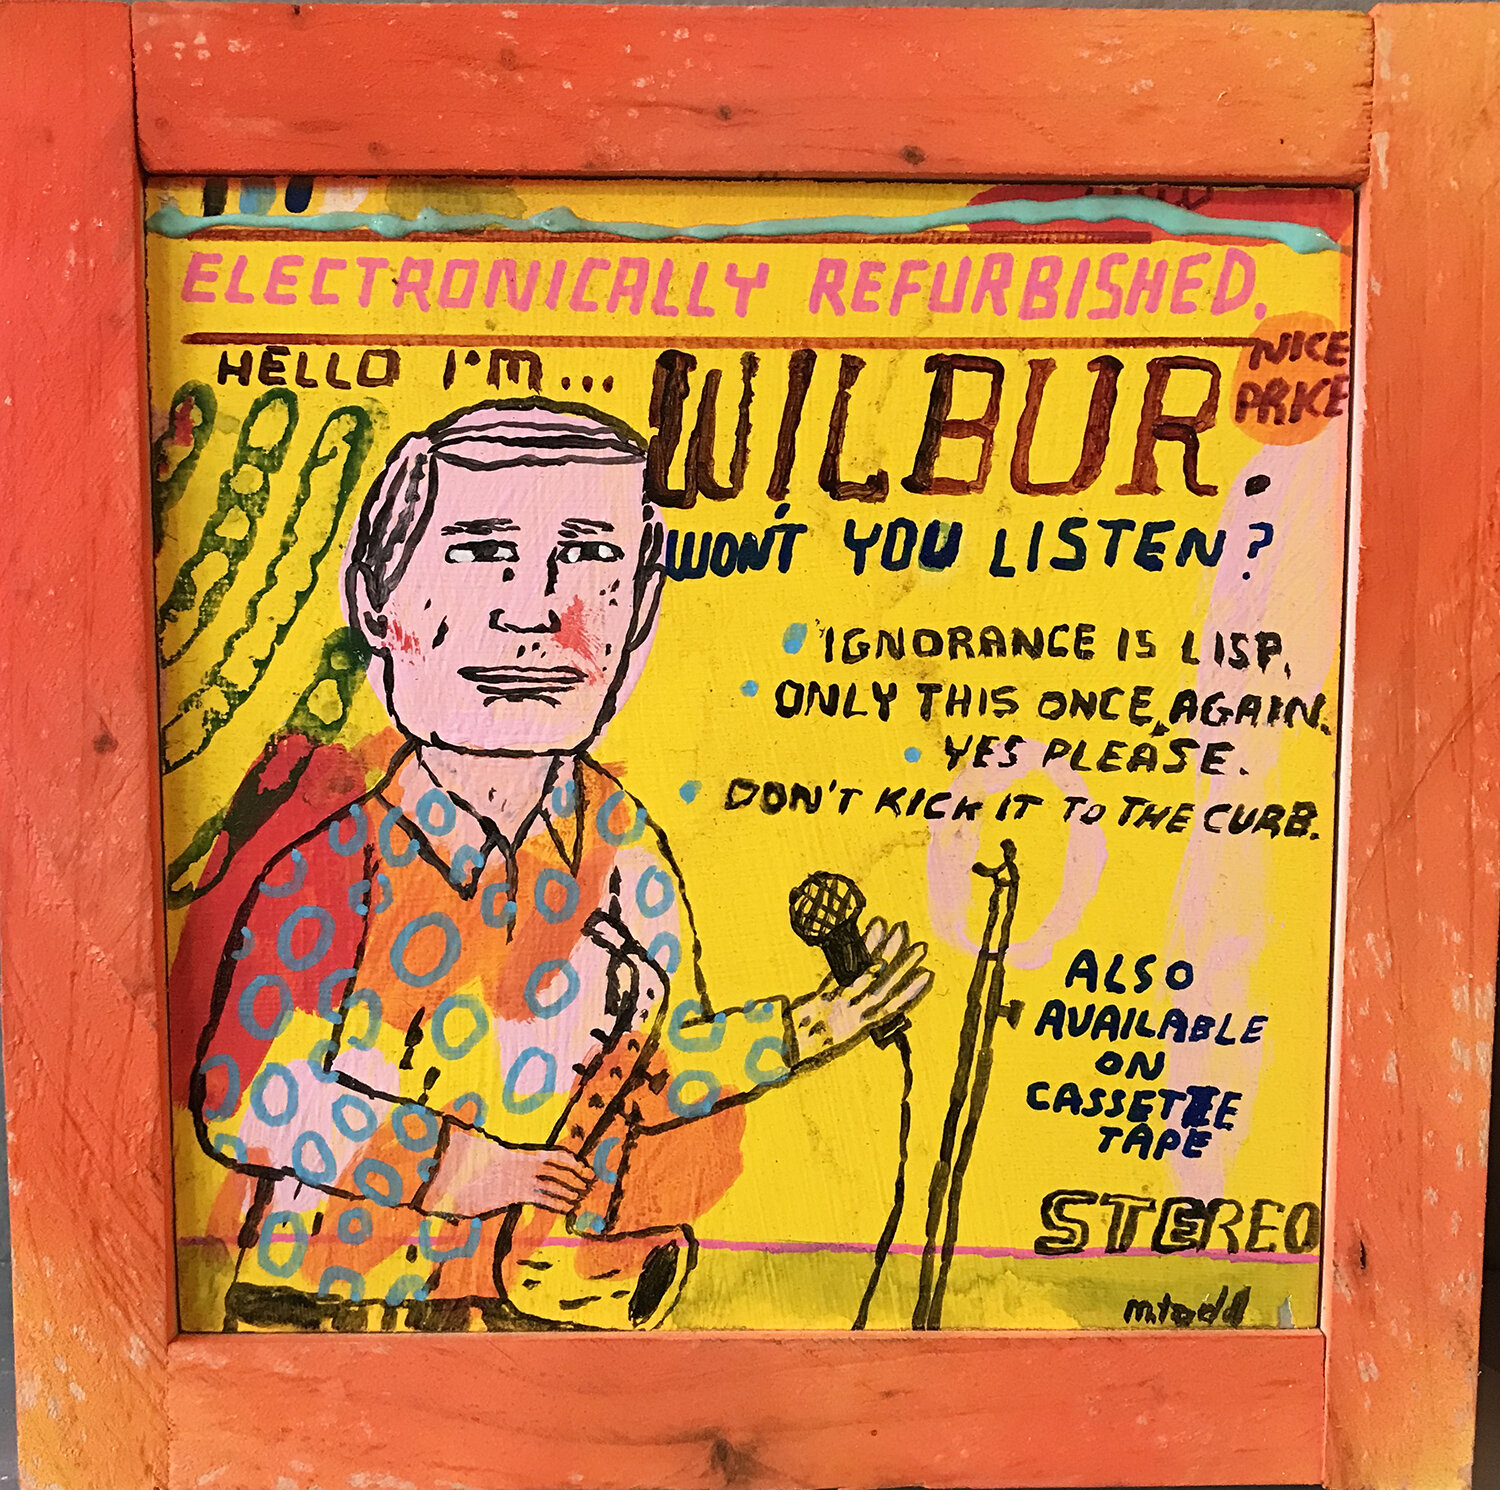 ELECTRONICALLY REFURBISHED.
HELLO I'M... WILBUR.
NICE
PRICE
WON'T YOU LISTEN?
IGNORANCE IS LISP.
ONLY THIS ONCE, AGAIN.
YES PLEASE.
DON'T KICK IT TO THE CURB.
ALSO
AVAILABLE
ON
CASSETTE
TAPE
STEREO
m.todd